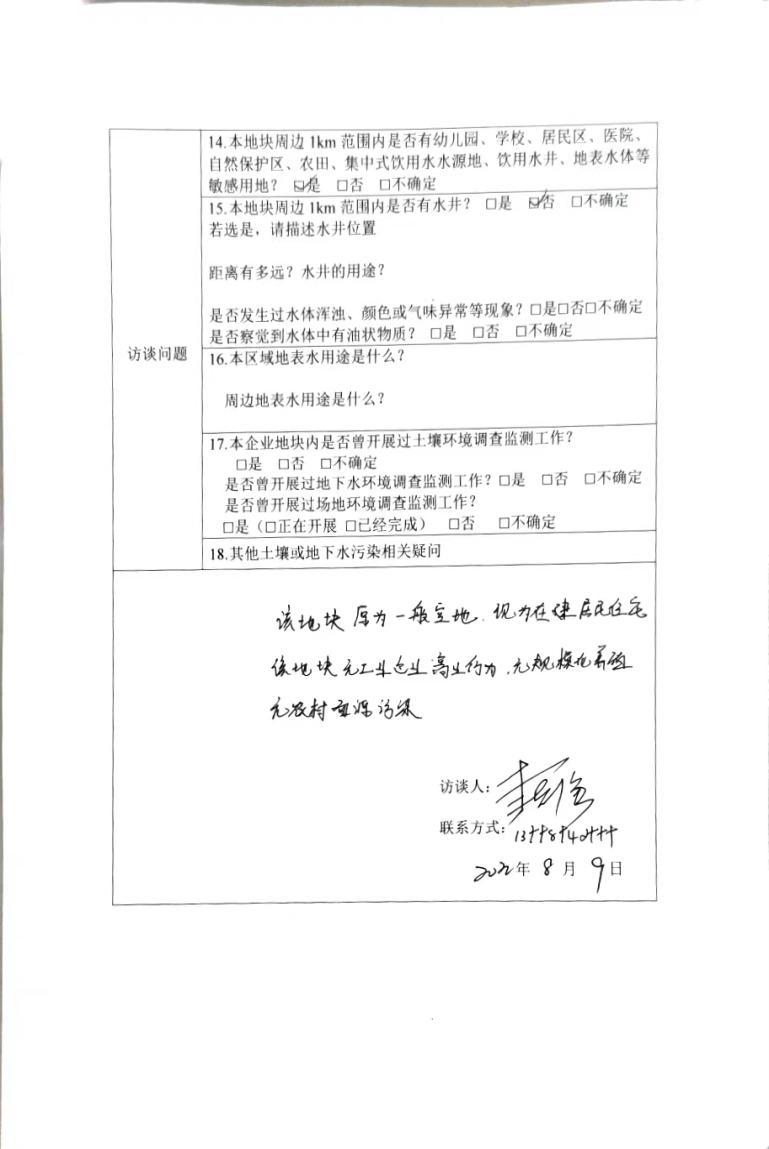 14.本地块周边 1km 范围内是否有幼儿园、学校、居民区、医院、
自然保护区、农田、集中式饮用水水源地、饮用水井、地表水体等
敏感用地? ☑是 □否 □不确定
15.本地块周边 1km 范围内是否有水井? □是 ☑否 □不确定
若选是，请描述水井位置
距离有多远? 水井的用途?
是否发生过水体浑浊、颜色或气味异常等现象? □是□否□不确定
是否察觉到水体中有油状物质? □是 □否 □不确定
访谈问题
16.本区域地表水用途是什么?
周边地表水用途是什么?
17.本企业地块内是否曾开展过土壤环境调查监测工作?
□是 □否 □不确定
是否曾开展过地下水环境调查监测工作? □是 □否 □不确定
是否曾开展过场地环境调查监测工作?
□是（□正在开展 □已经完成） □否 □不确定
18.其他土壤或地下水污染相关疑问
该地块原为一般空地，现为在建居民住宅
该地块无工业企业 行为，无规模化养殖
无农村 污染
访谈人:
联系方式:
2022年 8 月 9 日